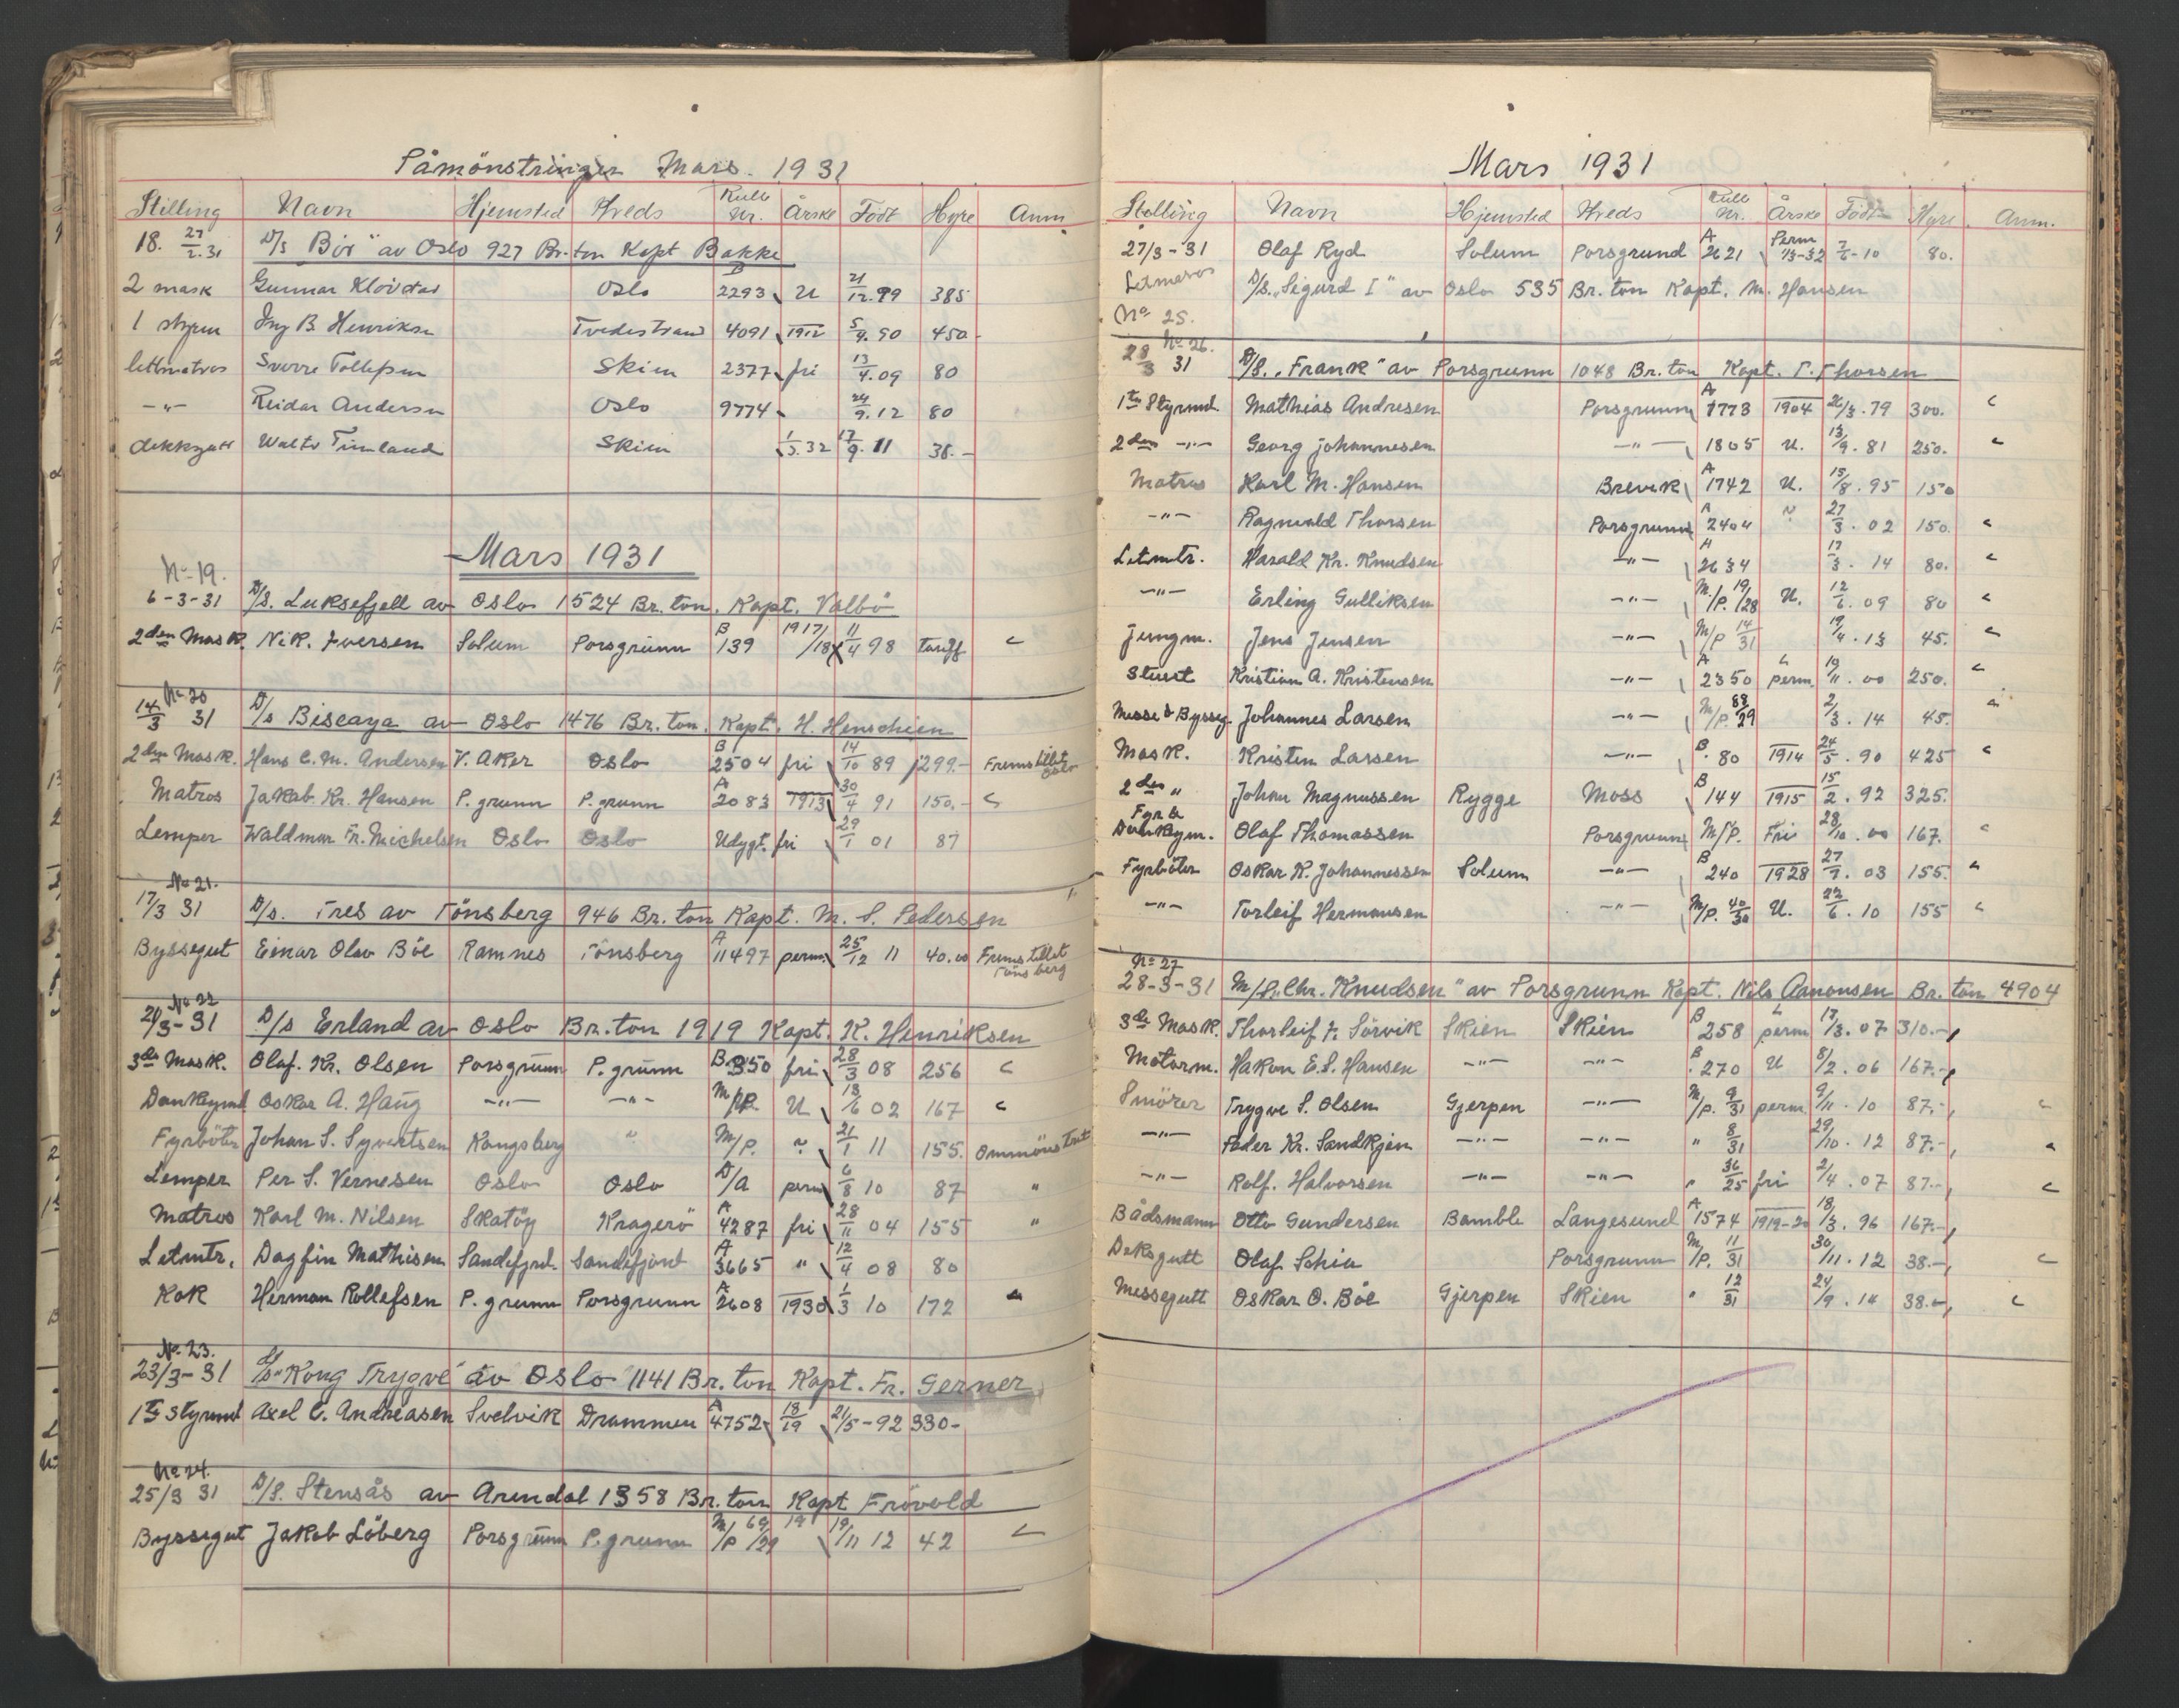 Påmönstringer Mars. 1931
Stilling Navn Hjemsted Kreds Rulle Nr. Årskl Födt Hyre Anm
18. 27/2.31 D/s "Bör" av Oslo 927 Br. ton Kapt Bakke
2 mask Gunnar Klovdal Oslo B 2293 U 21/12.99 385
1 styrm Ing B. Henriksen Tvedestrand 4091 1912 5/9.90 450-
lettmatros Sverre Tollefsen Skien 2377 fri 13/4.09 80
-"- Reidar Andersen Oslo 9774 24/9.12 80
dekksgutt Walter Timland Skien 1/5.32 17/9.11 38.-
Mars 1931
No 19.
6-3-31 D/S. Luksefjell av Oslo 1524 Br. ton. Kapt. Valbö
2den Mask. Nik. Iversen Solum Porsgrunn B 139 1917/18 11/4 98 tariff
No 20
14/3 31 D/s Biscaya av Oslo 1476 Br. ton. Kapt. H. Henschien
2den Mask. Hans C. M. Andersen V. Aker Oslo B 2504 fri 14/10 89 299.- Fremstillet Oslo
Matros Jakob Kr. Hansen P.grunn P.grunn A 2083 1913 30/4 91 150.-
Lemper Waldmar Fr. Michelsen Oslo Oslo Udygt. fri 29/1 01 87
No 21.
17/3 31 D/s. Tres av Tönsberg 946 Br. ton Kapt. M. S. Pedersen
Byssegut Einar Olav Böe Ramnes Tönsberg A 11497 perm. 25/12 11 40.00 Fremstillet Tönsberg
No 22
21/3-31 D/s Erland av Oslo Br. ton 1919 Kapt. K. Henriksen
3die Mask. Olaf. Kr. Olsen Porsgrunn P.grunn B. 350 fri 28/3 08 256
Donkeymd Oskar A. Haug -"- -"- M/P. U 13/6 02 167
Fyrböter Johan S. Syvertsen Kongsberg " M/P. " 21/1 11 155. Ommönstret
Lemper Per S. Vernesen Oslo Oslo D/A perm 6/8 10 87 "
Matros Karl M. Nilsen Skatöy Kragerö A 4287 fri 28/11 04 155 "
Letmtr. Dagfin Mathisen Sandefjrd. Sandefjord A 3665 " 12/4 08 80
Kok Herman Rollefsen P.grunn Porsgrunn A 2608 1930 1/3 10 172
No 23.
23/3-31 D/s "Kong Trygve" av Oslo 1141 Br. ton Kapt. Fr. Gerner
1ste Styrmd Axel C. Andreasen Svelvik Drammen A 4752 18/19 21/5-92 330-
No 24.
25/3 31 D/S. Stensås av Arendal 1358 Br. ton Kapt Frövold
Byssegut Jakob Löberg Porsgrunn P.grunn M/P 69/29 19 19/11 12 42
Mars 1931
Stilling Navn Hjemsted Kreds Rulle Nr. Årskl Födt Hyre Anm.
27/3-31 Olaf Ryd Solum Porsgrund A 2621 Perm 1/3-32 7/6-10 80.
Letmatros D/S. "Sigurd I" av Oslo 535 Br. ton Kapt. M. Hansen
No 25.
No 26.
28/3 31 D/S. "Frank" av Porsgrunn 1048 Br. ton Kapt. T. Thorsen
1ste Styrmd. Mathias Andresen Porsgrunn A 1773 1904 26/3.79 300.
2den -"- Georg Johannesen -"- 1805 U. 13/9.81 250.
Matros Karl M. Hansen Brevik A 1742 U. 15/8.95 150
-"- Ragnvald Thorsen Porsgrunn A 2404 " 27/3.02 150.
Letmtr. Harald Kr. Knudsen -"- A 2634 17/3.14 80.
-"- Erling Gulliksen -"- M./P. 19/28 U. 12/6.09 80
Jungm. Jens Jensen -"- M/P 14/31 19/4.13 45.
Stuert Kristian A. Kristensen -"- A 2350 perm. 19/11.00 250.
Messe & Bysseg. Johannes Larsen -"- M/P. 88/29 2/3.14 45.
Mask. Kristen Lassen -"- B 80 1914 24/5.90 425
2den " Johan Magnussen Rygge Moss B 144 1915 15/2.92 325.
Fyrb
Donkeym. Olaf Thomassen Porsgrunn M/P. Fri 28/10.00 167.
Fyrböter Oskar K. Johannessen Solum -"- B 240 1928 27/9.03 155.
-"- Torleif Hermansen -"- M/P. 40/30 U. 22/6.10 155
No 27
28-3-31 M/S. "Chr. Knudsen" av Porsgrunn Kapt. Nils Aanonsen Br. ton 4904
3die Mask. Thorleif F. Sörvik Skien Skien B 258 perm 17/3.07 310.-
Motorm. Hakon E. S. Hansen -"- -"- B 270 U 8/2.06 167.-
Smörer Trygve S. Olsen Gjerpen -"- M/P. 9/31 perm. 9/11.10 87.-
-"- Peder Kr. Sandkjen -"- -"- " 8/31 29/10.12 87.-
-"- Rolf. Halvorsen -"- -"- " 36/25 fri 2/4.07 87.-
Bådsmann Otto Gundersen Bamble Langesund A 1574 1919-20 18/3.96 167.-
Deksgutt Olaf Schie Porsgrunn M/P. 11/31 30/11.12 38.-
Messegutt Oskar O. Böe Gjerpen Skien " 12/31 24/9.14 38.-